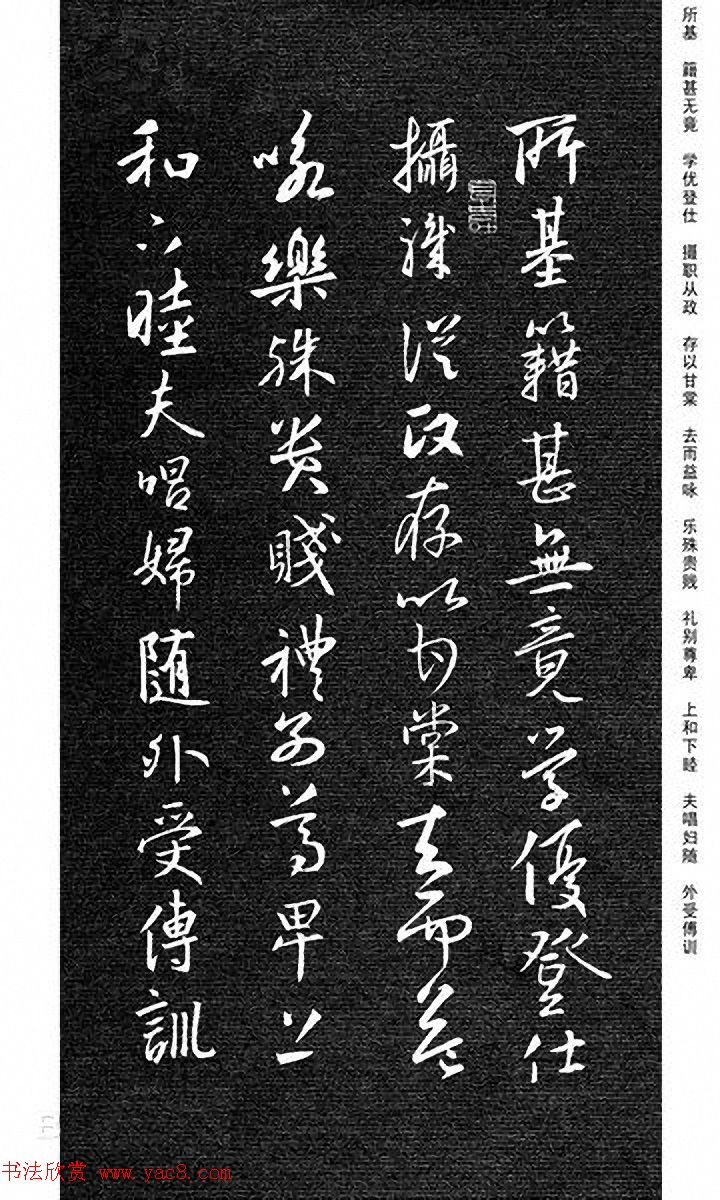 所基 籍甚无竟 学优登仕 摄职从政 存以甘棠 去而益咏 乐殊贵贱 礼别尊卑 上和下睦 夫唱妇随 外受傅训
所基籍甚無竟学優登仕
攝職從政存以甘棠去而益
咏樂殊貴賤禮別尊卑上
和下睦夫唱婦随外受傅訓
书法欣赏 www.yac8.com